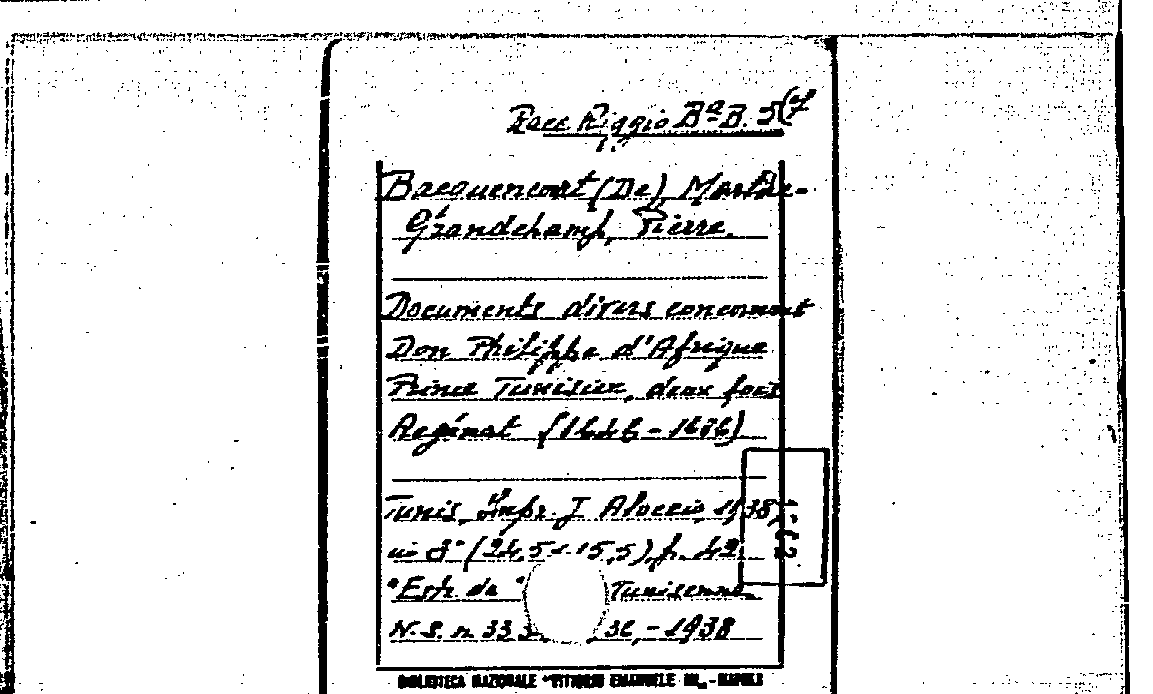 Racc Riggio Bª B. 5(7
Bacquencourt (De) Marthe-
Grandchamp, Pierre.
Documents divers concernant
Don Philippe d'Afrique
Prince Tunisien, deux fois
Régénat (1646-1686)
Tunis, Impr. J. Aloccio, 1938,
in 8° (24,5 x 15,5), p. 42.
"Estr. da " Tunisienne
N. S. n. 33 3 36,-1938
BIBLIOTECA NAZIONALE "VITTORIO EMANUELE III„ - NAPOLI